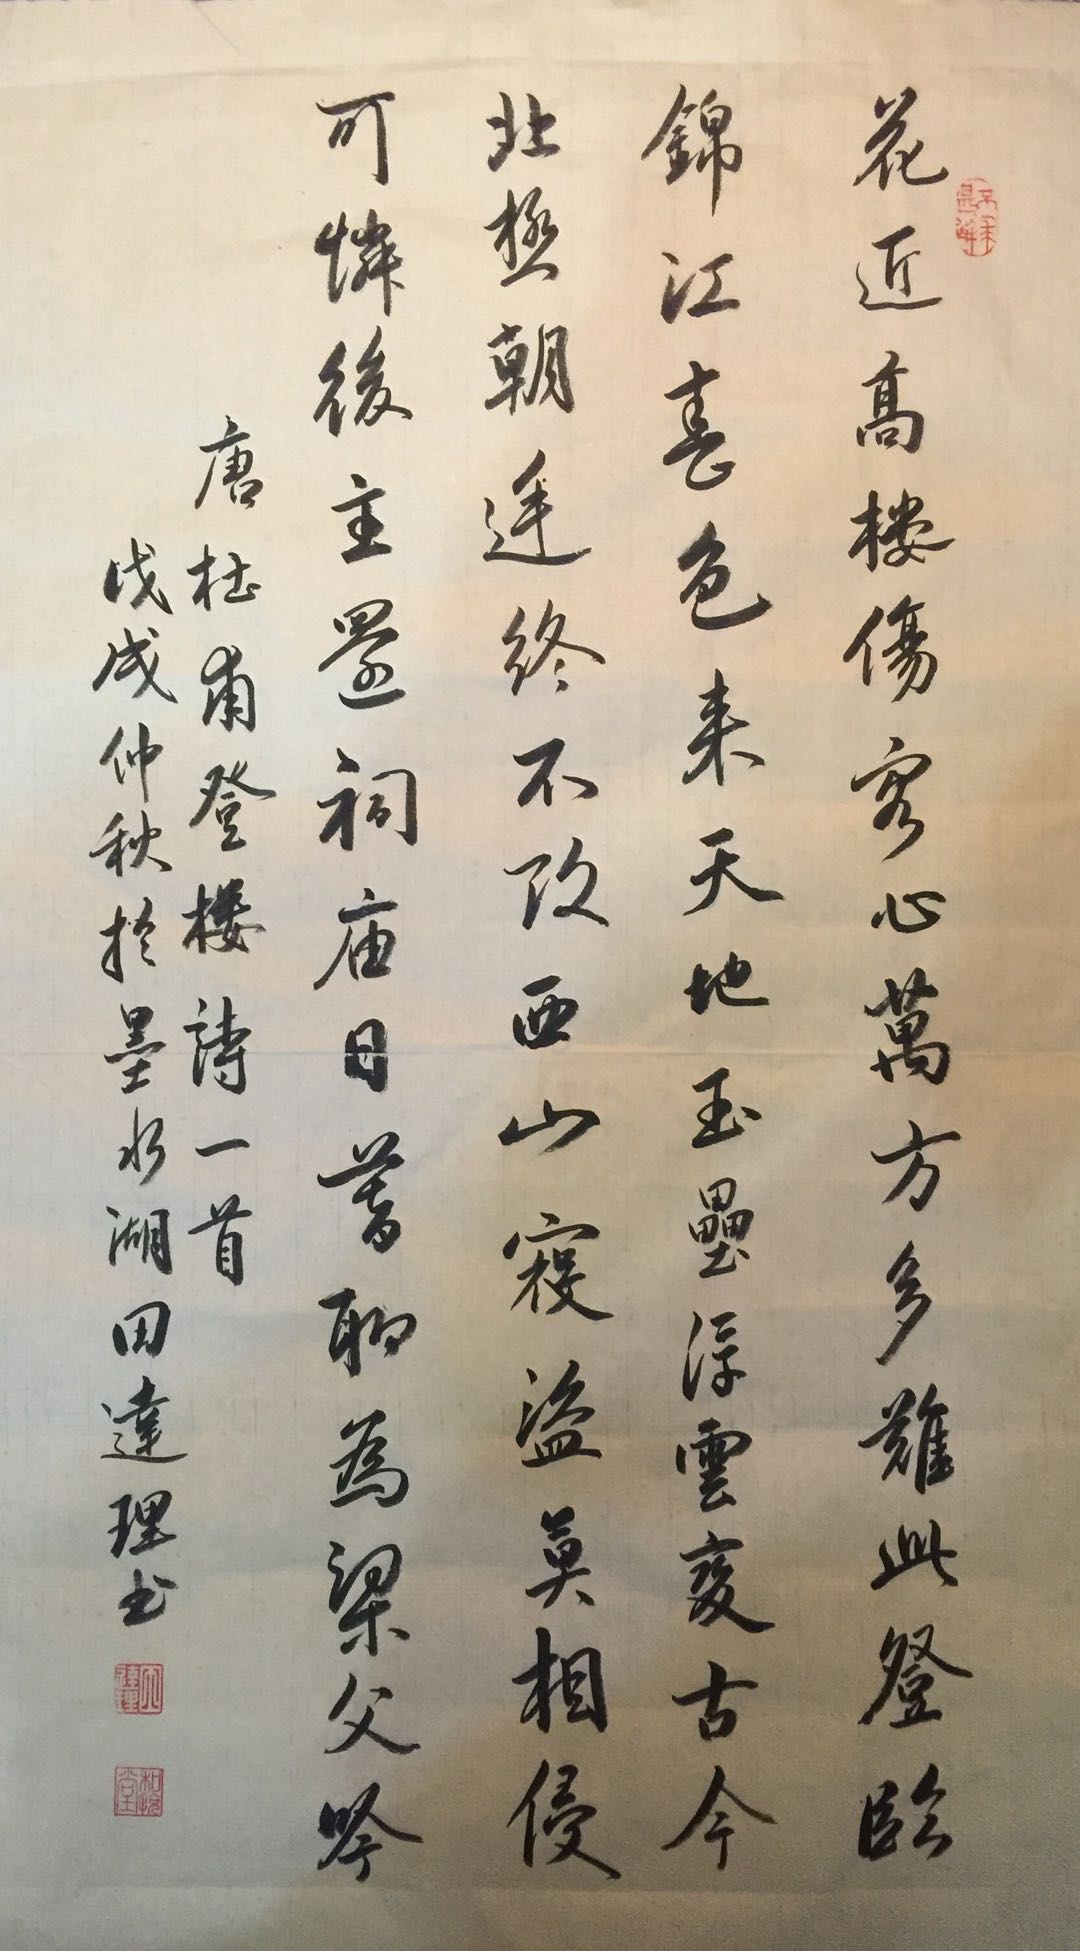 花近高樓傷客心萬方多難此登臨
錦江春色来天地玉壘浮雲变古今
北極朝廷終不改西山寇盗莫相侵
可憐後主還祠庙日暮聊為梁父吟
唐杜甫登楼詩一首
戊戌仲秋於墨水湖田達理书